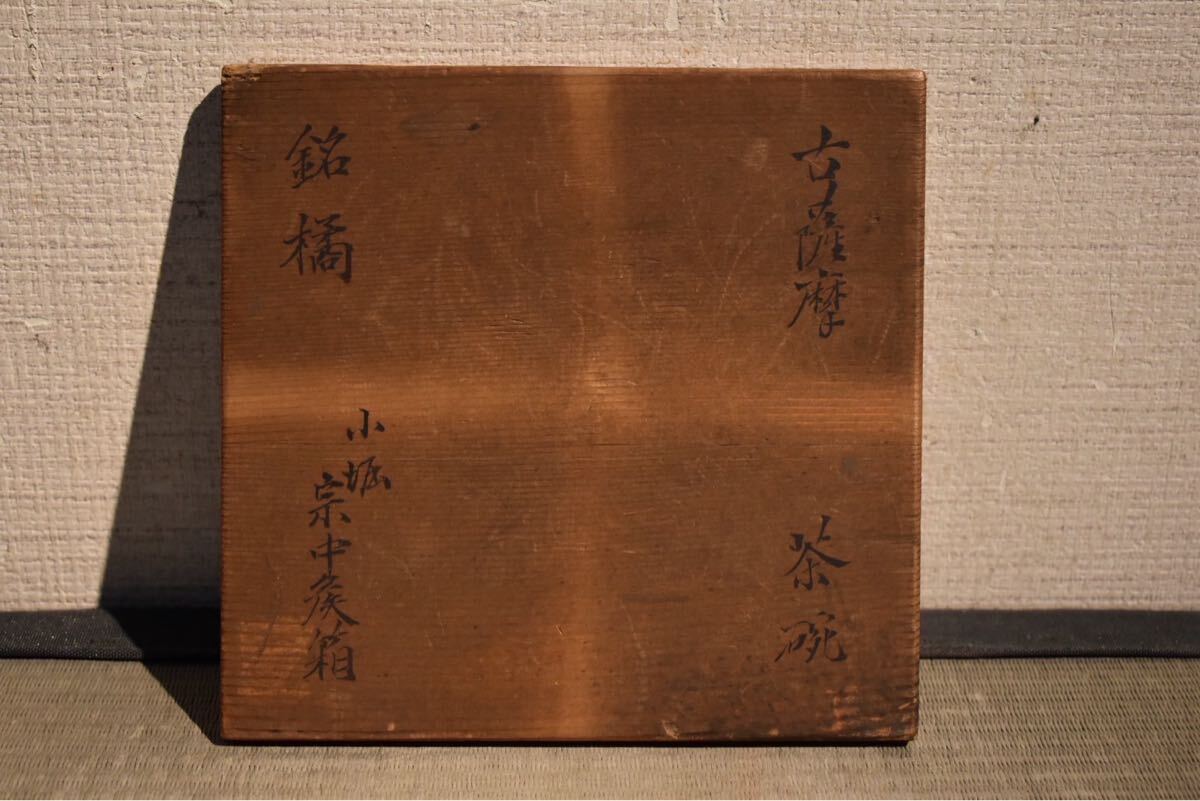 古薩摩
茶碗
銘橘
小堀
宗中矦箱